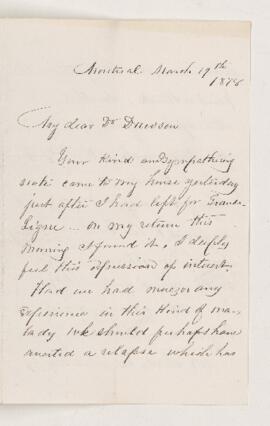 Montreal March 19th
1878
My dear Dr Dawson
Your kind and sympathising
note came to my house yesterday
just after I had left for Grande
Ligne ... on my return this
morning I found it. I deeply
feel this expression of interest.
Had we had more or any
experience in this kind of ma-
lady we should perhaps have
averted a relapse which has